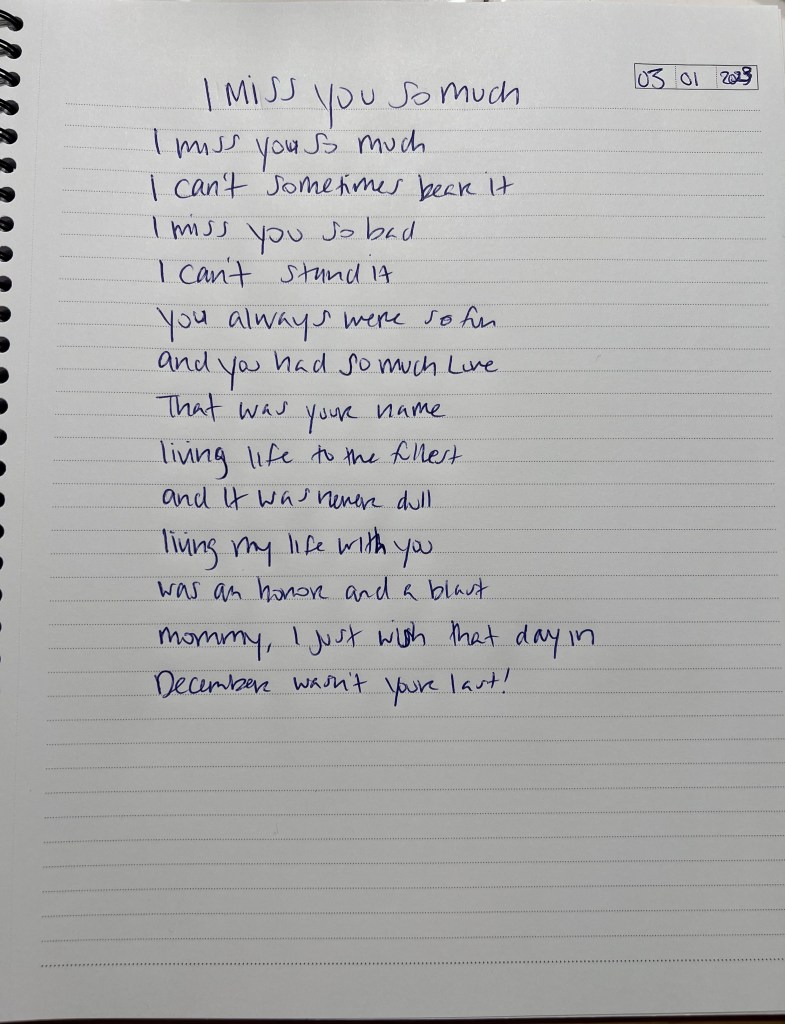 03 01 2023
I MISS YOU SO MUCH
I miss you so much
I can't sometimes bear it
I miss you so bad
I can't stand it
you always were so fun
and you had so much Love
That was your name
living life to the fullest
and it was never dull
living my life with you
was an honor and a blast
mommy, I just wish that day in
December wasn't your last!